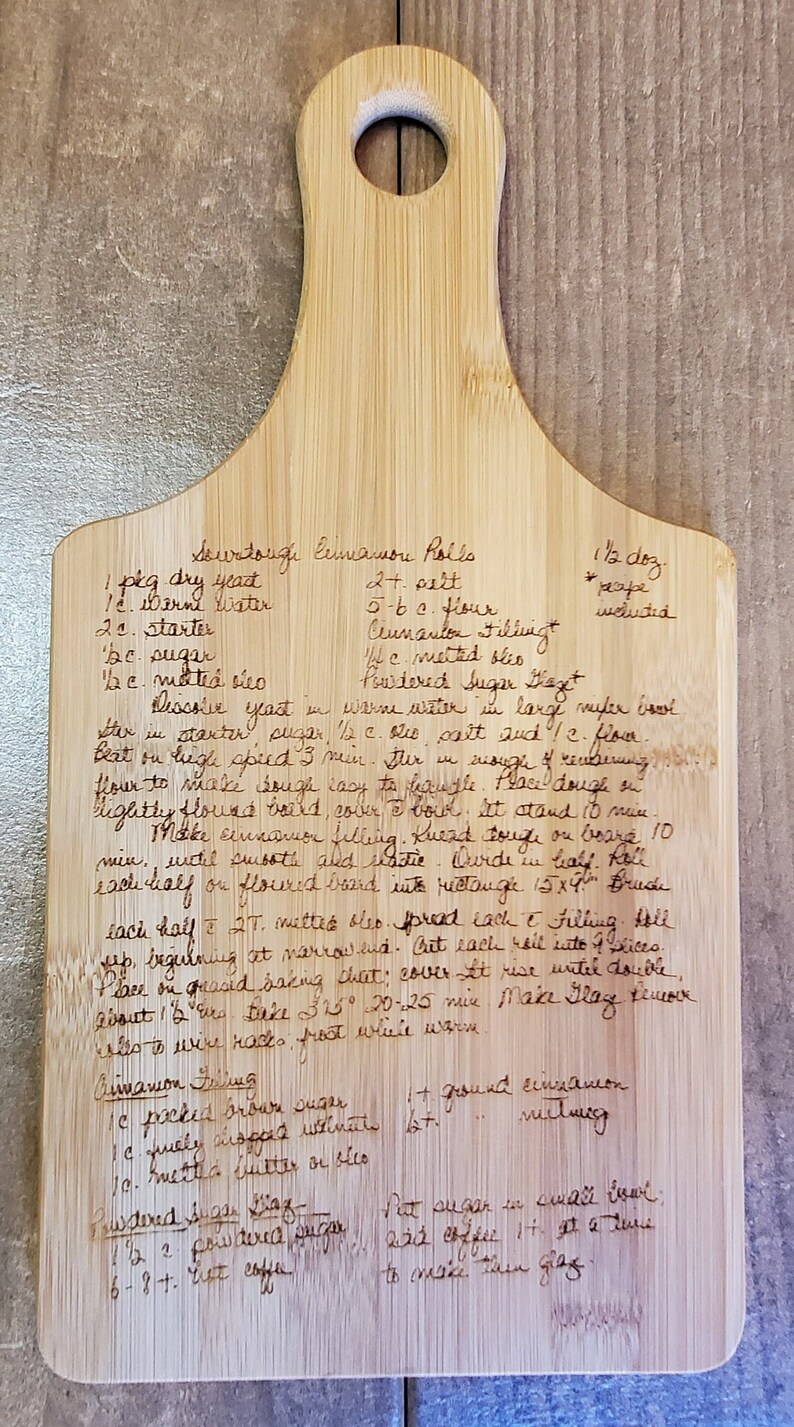 Sourdough Cinnamon Rolls 1½ doz.
1 pkg dry yeast 2 t. salt * recipe
1 c. warm water 5-6 c. flour included
2 c. starter Cinnamon Filling*
½ c. sugar ¼ c. melted oleo
½ c. melted oleo Powdered Sugar Glaze*
Dissolve yeast in warm water in large mixer bowl
Stir in starter, sugar, ½ c. oleo, salt and 1 c. flour.
Beat on high speed 3 min. Stir in enough of remaining
flour to make dough easy to handle. Place dough on
lightly floured board, cover c̄ bowl. Let stand 10 min.
Make cinnamon filling. Knead dough on board 10
min., until smooth and elastic. Divide in half. Roll
each half on floured board into rectangle 15x9" Brush
each half c̄ 2T. melted oleo. Spread each c̄ Filling. Roll
up, beginning at narrow end. Cut each roll into 9 slices.
Place on greased baking sheet; cover. Let rise until double,
about 1½ hrs. Bake 375° 20-25 min. Make Glaze. Remove
rolls to wire racks; frost while warm.
Cinnamon Filling
1 c packed brown sugar 1 t ground cinnamon
1 c. finely chopped walnuts t. " nutmeg
1 c. melted butter or oleo
Powdered Sugar Glaze Put sugar in small bowl;
1½ c. powdered sugar add coffee 1 t. at a time
6-8 t. hot coffee to make thin glaze.